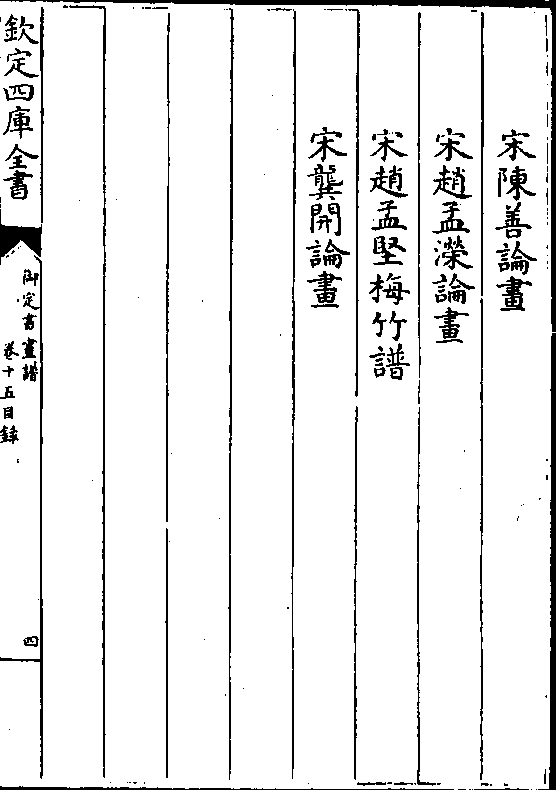 宋陳善論畫
宋趙孟濚論畫
宋趙孟堅梅竹譜
宋龔開論畫
欽定四庫全書
御定書畫譜
卷十五目錄
四